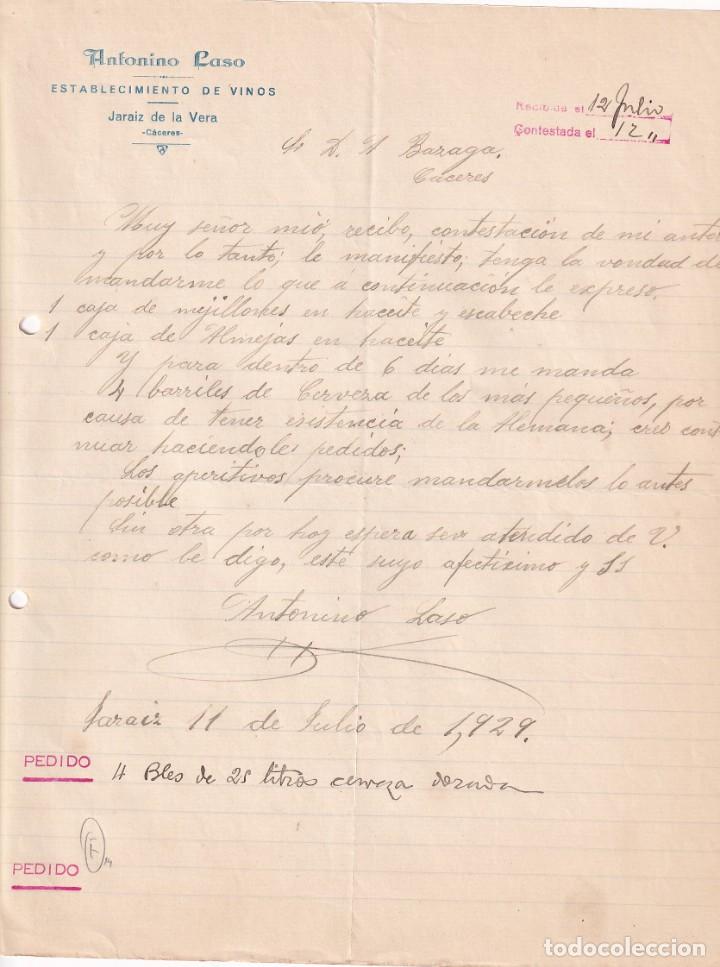 Antonino Laso
ESTABLECIMIENTO DE VINOS
Jaraiz de la Vera
-Cáceres-
Recibida el 12 Julio
Contestada el 12 "
Sr D. A Baraga.
Caceres
Muy señor mió, recibo, contestación de mi anter
y por lo tanto; le manifiesto; tenga la vondad de
mandarme lo que á continuación le expreso.
1 caja de mejillones en haceite y escabeche
1 caja de Almejas en haceite
Y para dentro de 6 dias me manda
4 barriles de Cerveza de los más pequeños, por
causa de tener existencia de la Alemana; creo conti
nuar haciendoles pedidos;
Los aperitivos procure mandarmelos lo antes
posible
Sin otra por hoy espera ser atendido de V.
como le digo, este suyo afectisimo y SS
Antonino Laso
Jaraiz 11 de Julio de 1,929.
PEDIDO 4 Bles de 25 litros cerveza dorada
PEDIDO
todocoleccion